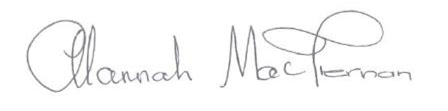 Alannah MacTiernan